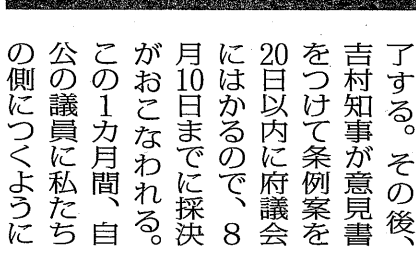 了する。その後、
吉村知事が意見書
をつけて条例案を
20日以内に府議会
にはかるので、8
月10日までに採決
がおこなわれる。
この1カ月間、自
公の議員に私たち
の側につくように